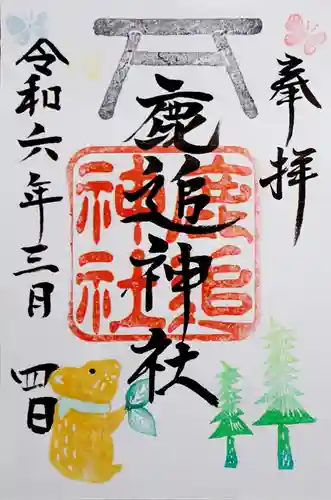 奉拝
鹿追神社
鹿追神社
令和六年三月四日